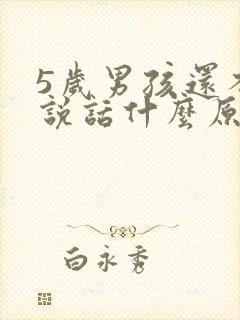 5歲男孩還不
說話什麼原
白永秀